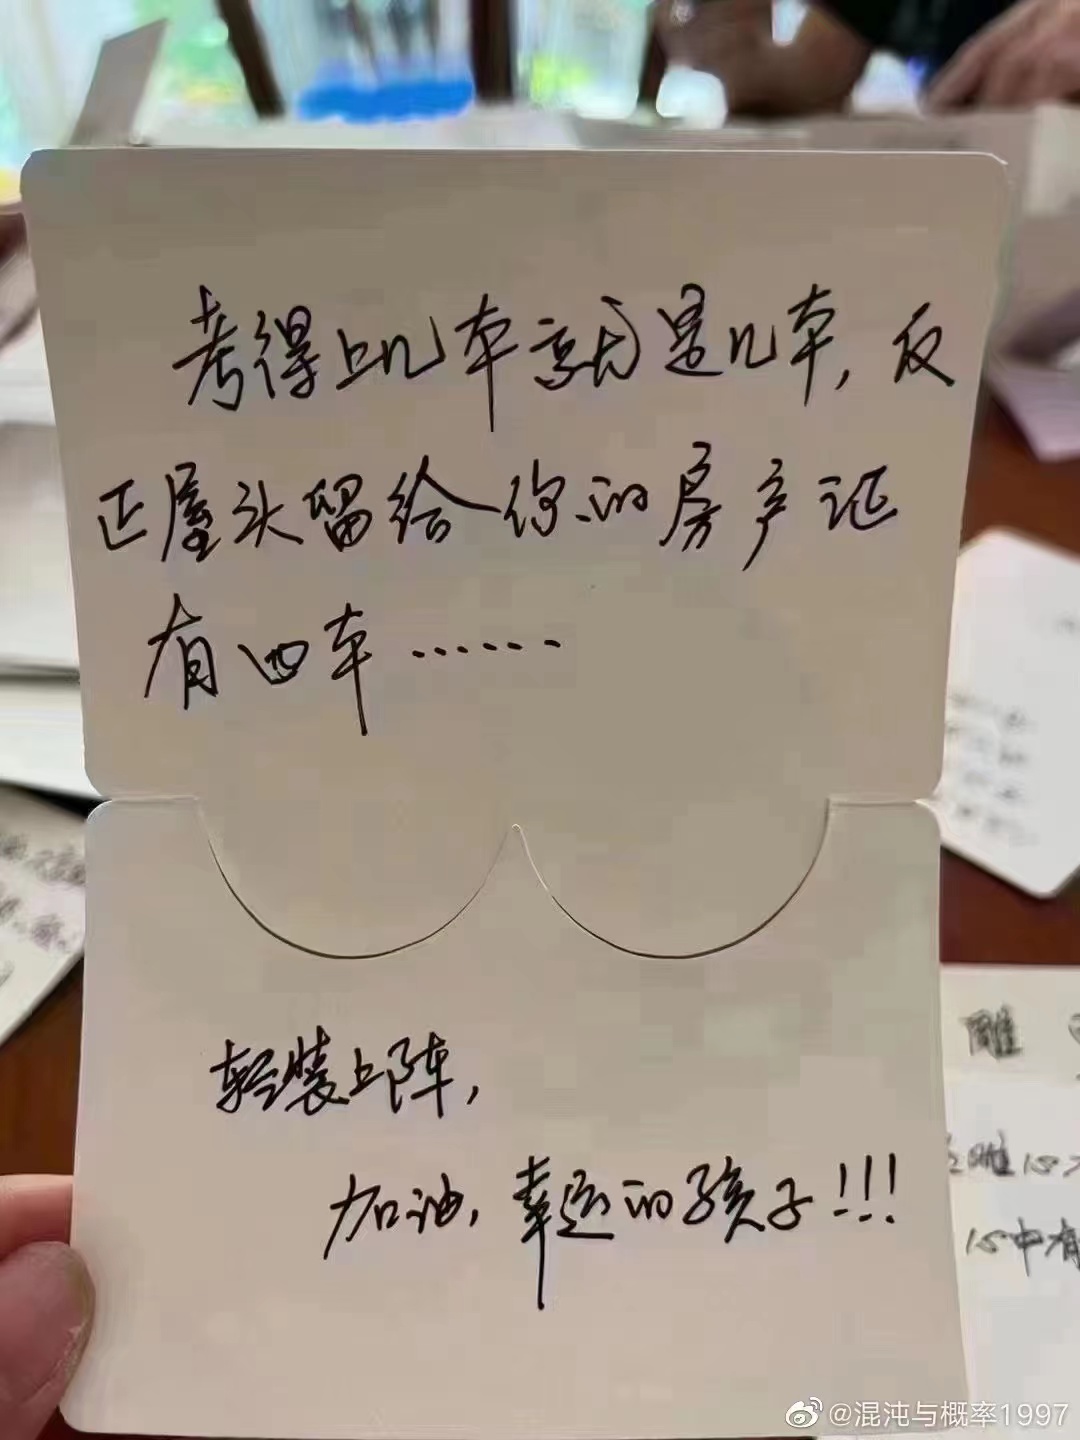 考得上几本就是几本,反
正屋头留给你的房产证
有四本……
轻装上阵,
加油,幸运的孩子!!!
雕
心中有
@混沌与概率1997